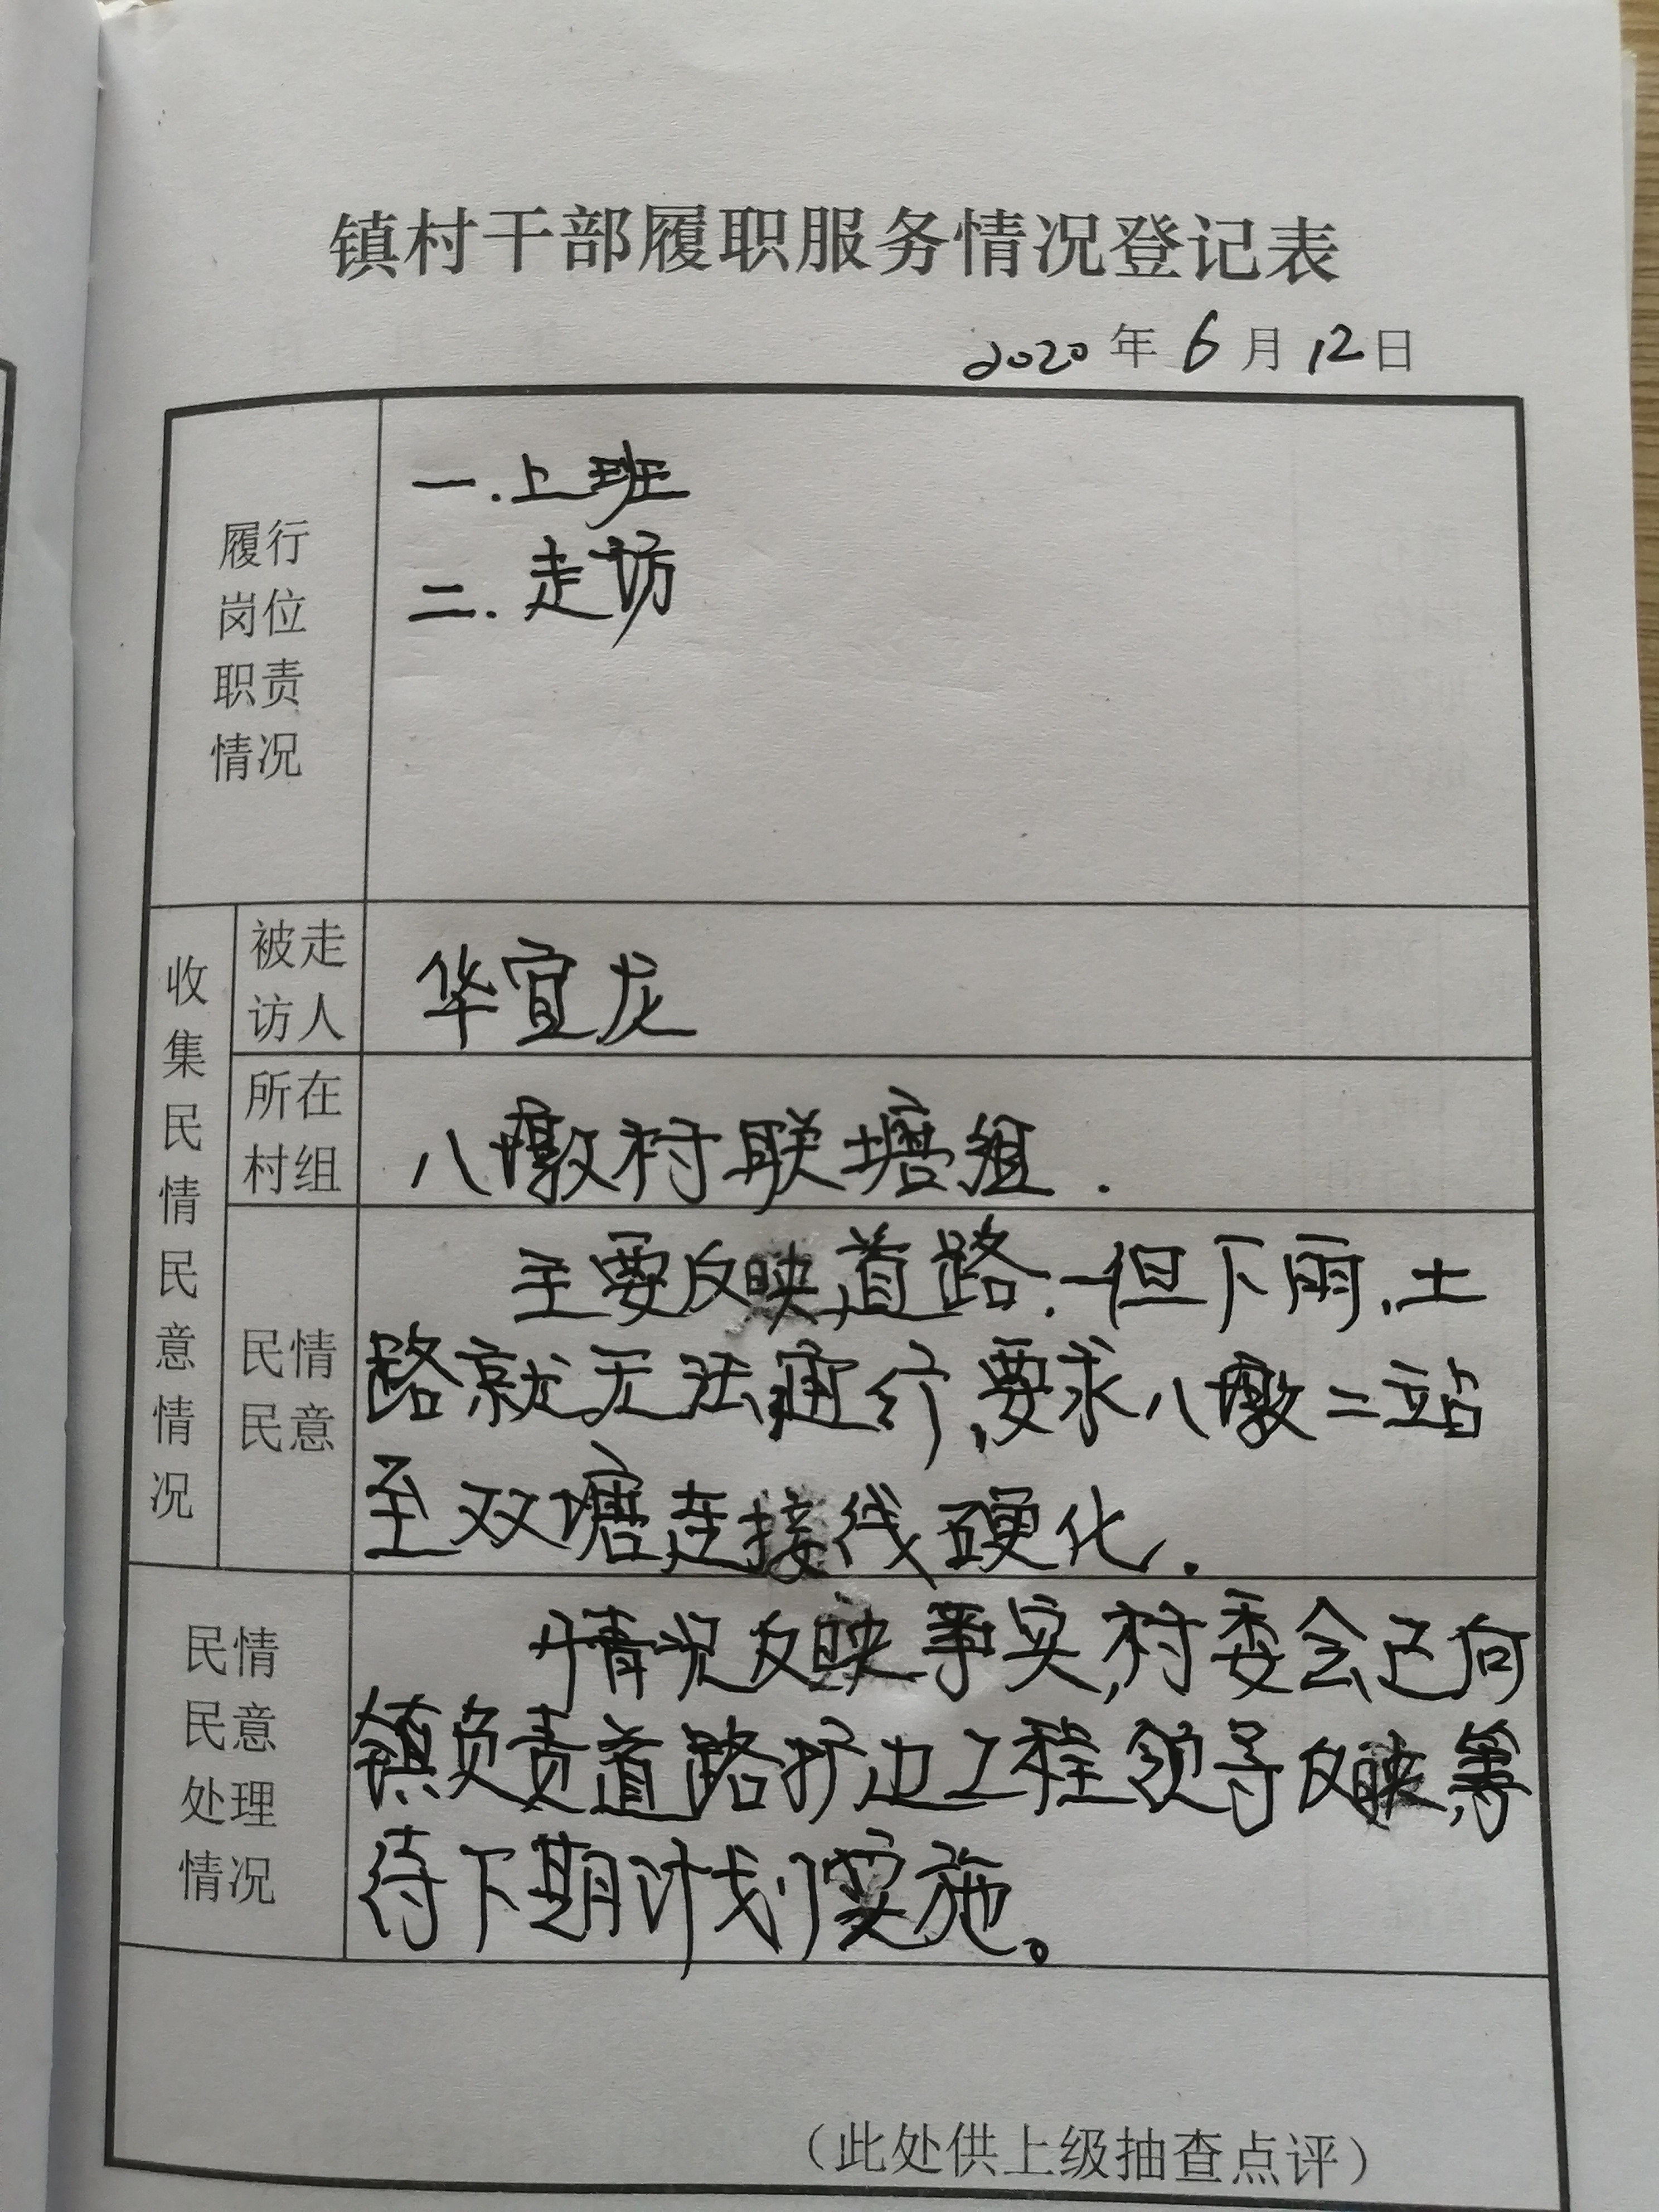 镇村干部履职服务情况登记表
2020年6月12日
履行
岗位
职责
情况
一.上班
二.走访
收集民情民意情况
被走
访人
华宜龙
所在
村组
八墩村联塘组.
民情
民意
主要反映道路.一但下雨,土
路就无法通行,要求八墩二站
至双塘连接线硬化.
民情
民意
处理
情况
情况反映事实,村委会已向
镇负责道路扩边工程领导反映,等
待下期计划实施。
（此处供上级抽查点评）